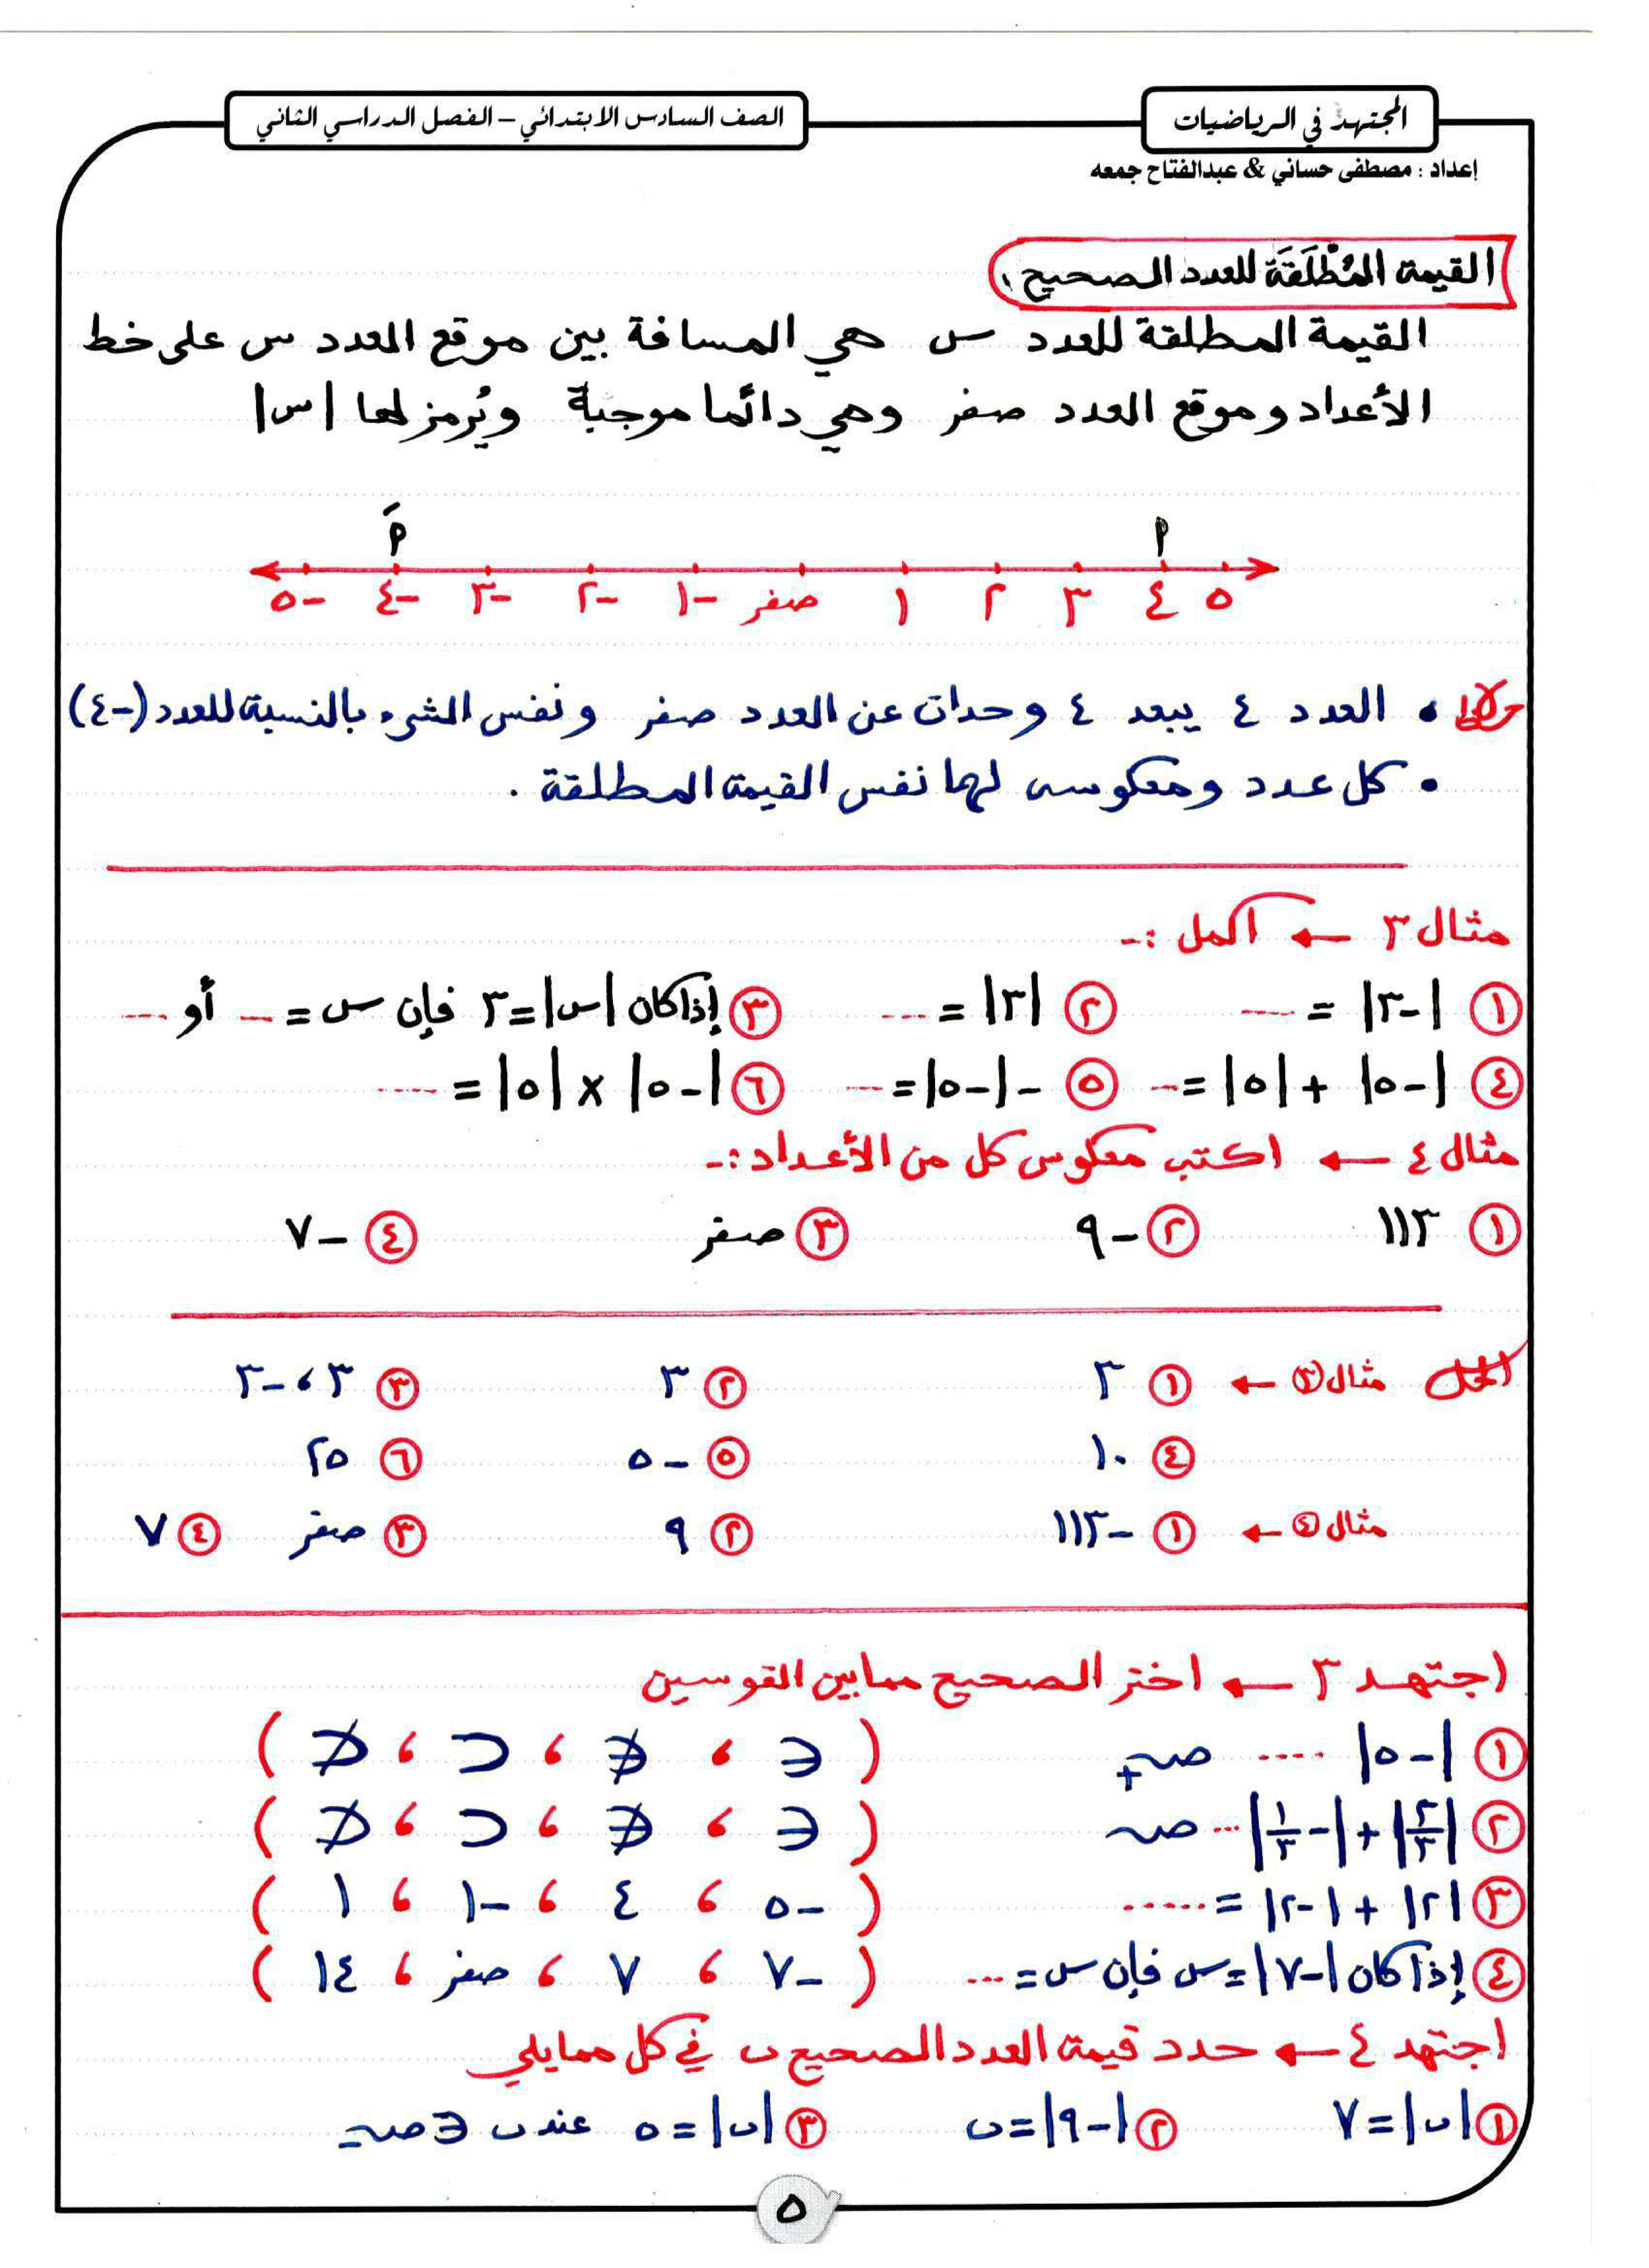 المجتهد في الرياضيات
الصف السادس الابتدائي – الفصل الدراسي الثاني
إعداد : مصطفى حساني & عبدالفتاح جمعه
القيمة المُطْلَقَة للعدد الصحيح :
القيمة المطلقة للعدد س هي المسافة بين موقع العدد س على خط
الأعداد وموقع العدد صفر وهي دائما موجبة ويُرمز لها |س|
أَ أ
-٥ -٤ -٣ -٢ -١ صفر ١ ٢ ٣ ٤ ٥
لاحظ • العدد ٤ يبعد ٤ وحدات عن العدد صفر ونفس الشيء بالنسبة للعدد (-٤)
• كل عدد ومعكوسه لهما نفس القيمة المطلقة .
مثال ٣ ← أكمل :-
١ |-٣| = .... ٢ |٣| = .... ٣ إذا كان |س|=٣ فإن س = ... أو ....
٤ |-٥| + |٥| = ... ٥ -|-٥| = .... ٦ |-٥| × |٥| = ....
مثال ٤ ← اكتب معكوس كل من الأعداد :-
١ ١١٣ ٢ -٩ ٣ صفر ٤ -٧
الحل مثال ٣ ← ١ ٣ ٢ ٣ ٣ ٣ ، -٣
٤ ١٠ ٥ -٥ ٦ ٢٥
مثال ٤ ← ١ -١١٣ ٢ ٩ ٣ صفر ٤ ٧
اجتهد ٣ ← اختر الصحيح مما بين القوسين
١ |-٥| .... صـ+ ( ∈ ، ∉ ، ⊂ ، ⊄ )
٢ |٢/٣| + |-١/٣| ... صـ ( ∈ ، ∉ ، ⊂ ، ⊄ )
٣ |٢| + |-٢| = ..... ( -٥ ، ٤ ، -١ ، ١ )
٤ إذا كان |-٧|=س فإن س = ... ( -٧ ، ٧ ، صفر ، ١٤ )
اجتهد ٤ ← حدد قيمة العدد الصحيح ن في كل مما يلي
١ |ن| = ٧ ٢ |-٩| = ن ٣ |ن| = ٥ عند ن ∈ صـ-
٥